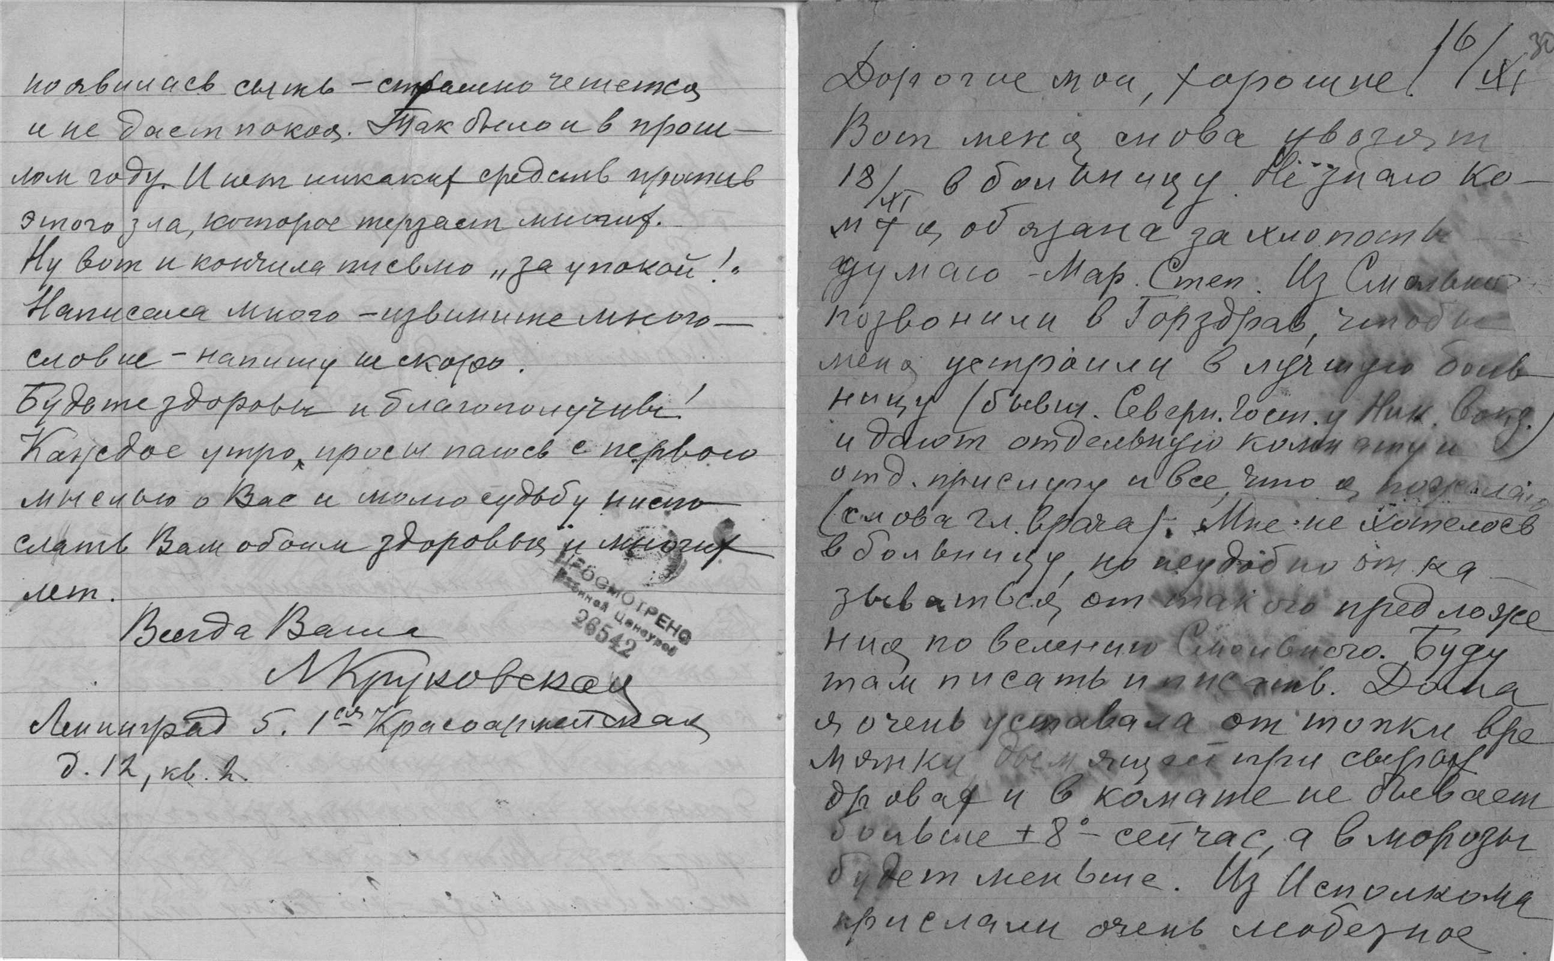 появилась сыпь – страшно чешется
и не дает покоя. Так было и в прош–
лом году. И нет никаких средств против
этого зла, которое терзает многих.
Ну вот и кончила письмо „за упокой!“
Написала много – извините много–
словие – напишу и скоро.
Будьте здоровы и благополучны!
Каждое утро, просыпаюсь с первою
мыслью о Вас и молю судьбуниспо
слать Вам обоим здоровья и многих
лет.
Всегда Ваша
ЛКруковская
Ленинград 5. 1ая Красноармейская
д. 12, кв. 2.
ПРОСМОТРЕНО
Военной Цензурой
26542
16/XI
30
Дорогие мои, хорошие!
Вот меня снова увозят
18/XI в больницу. Не знаю ко–
му я обязана за хлопоты –
думаю – Мар. Степ. Из Смольного
позвонили в Горздрав, чтобы
меня устроили в лучшую боль
ницу (бывш. Северн. Гост. у Ник. вокз.)
и дают отдельную комнату и
отд. прислугу и все, что я пожелаю
(слова гл. врача). Мне не хотелось
в больницу, но неудобно отка
зываться от такого предложе
ния по велению Смольного. Буду
там писать и писать. Дома
я очень уставала от топки вре
мянки дымящей при сырых
дровах и в комнате не бывает
больше +8° – сейчас, а в морозы
будет меньше. Из Исполкома
прислали очень любезное